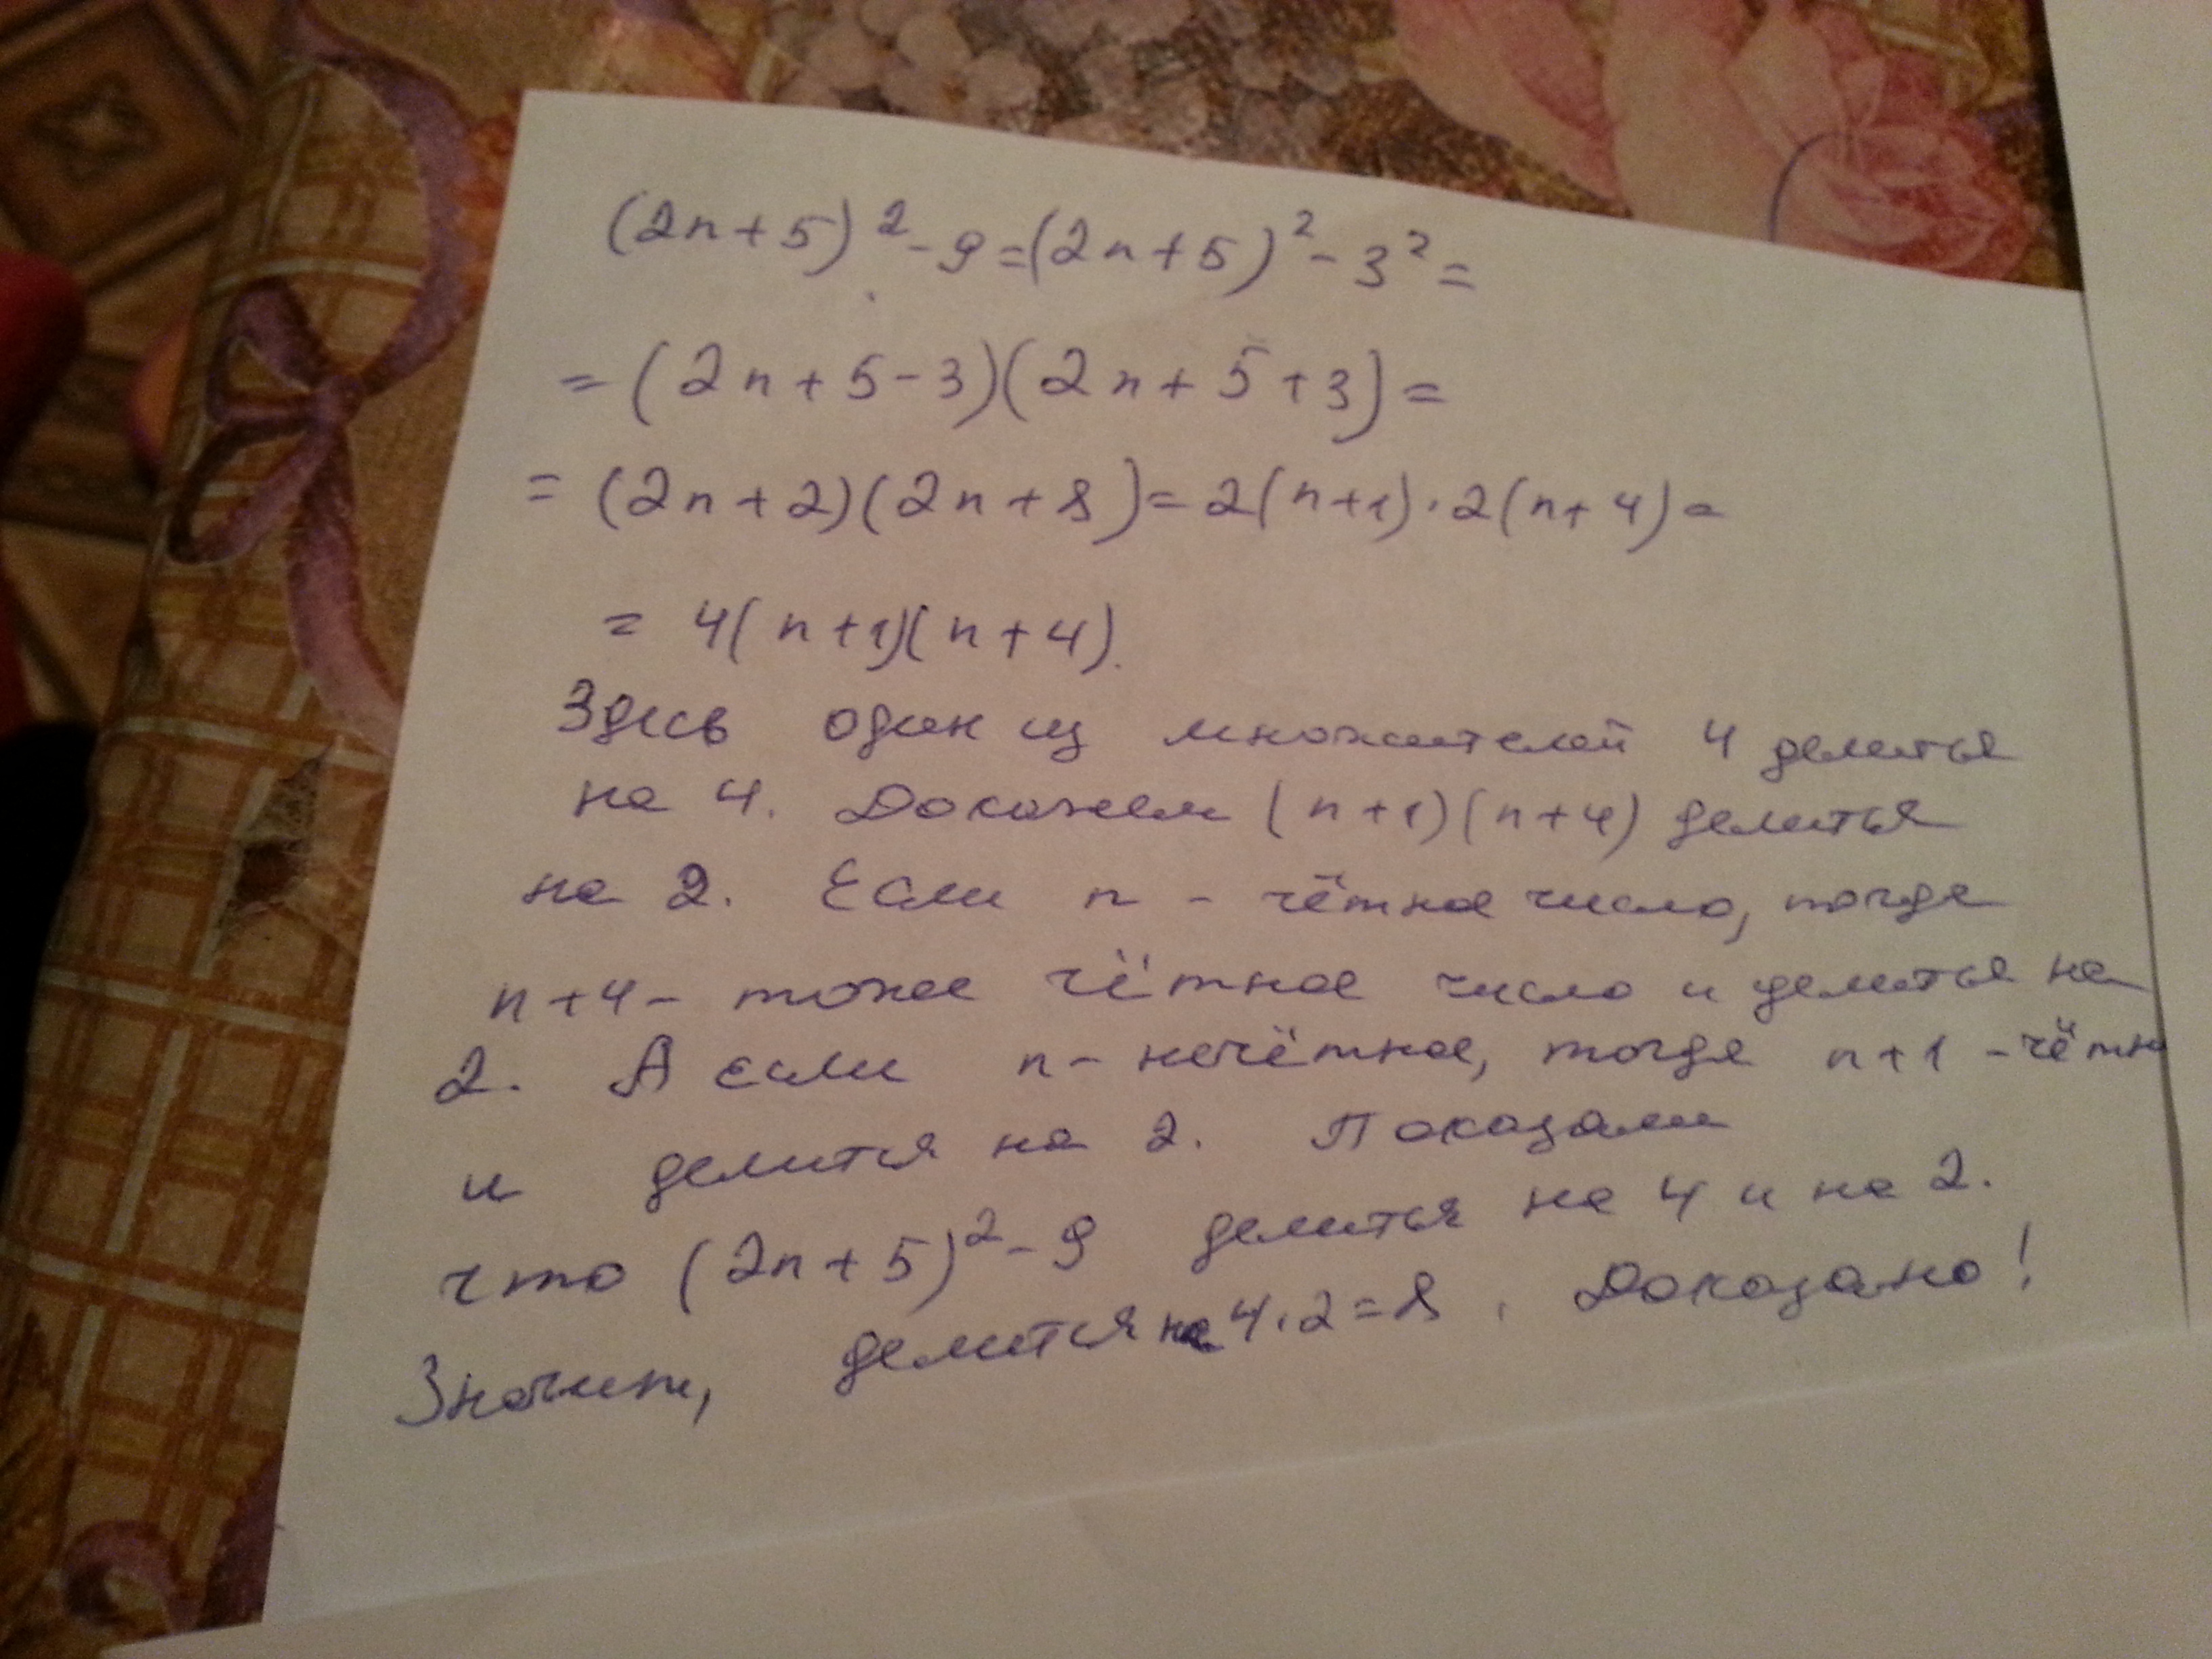 (2n+5)² - 9 = (2n+5)² - 3² =
= (2n+5-3)(2n+5+3) =
= (2n+2)(2n+8) = 2(n+1)·2(n+4) =
= 4(n+1)(n+4).
Здесь один из множителей 4 делится
на 4. Докажем (n+1)(n+4) делится
на 2. Если n - чётное число, тогда
n+4 - тоже чётное число и делится на
2. А если n - нечётное, тогда n+1 - чётн
и делится на 2. Показали
что (2n+5)² - 9 делится на 4 и на 2.
Значит, делится на 4·2=8. Доказано!